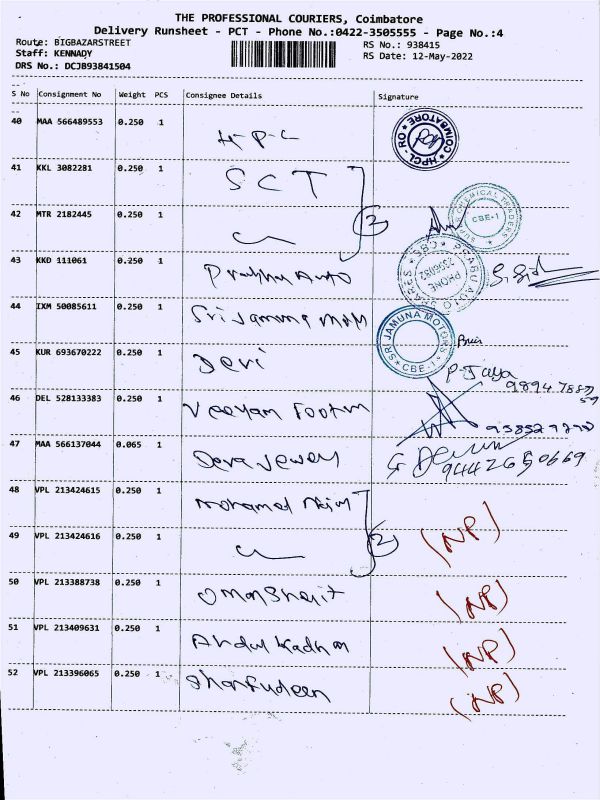 THE PROFESSIONAL COURIERS, Coimbatore
Delivery Runsheet - PCT - Phone No.:0422-3505555 - Page No.:4
Route: BIGBAZARSTREET
Staff: KENNADY
DRS No.: DCJB93841504
RS No.: 938415
RS Date: 12-May-2022
S No Consignment No Weight PCS Consignee Details Signature
40 MAA 566489553 0.250 1 H-P-C
HPCL-RO COIMBATORE
41 KKL 3082281 0.250 1 SCT
42 MTR 2182445 0.250 1 2
CHEMICAL TRADERS
CBE-1
43 KKD 111061 0.250 1 Prabhu Auto
PRABU AUTO SPARES CBS
PHONE
2396082
44 IXM 50085611 0.250 1 Sri Jamuna
SRI JAMUNA MOTORS
CBE-1
45 KUR 693670222 0.250 1 Devi P. Jaya
46 DEL 528133383 0.250 1
47 MAA 566137044 0.065 1 9442650669
48 VPL 213424615 0.250 1 Mohamed
49 VPL 213424616 0.250 1 2 (NP)
50 VPL 213388738 0.250 1 (NP)
51 VPL 213409631 0.250 1 Abdul (NP)
52 VPL 213396065 0.250 1 Sharfudeen (NP)